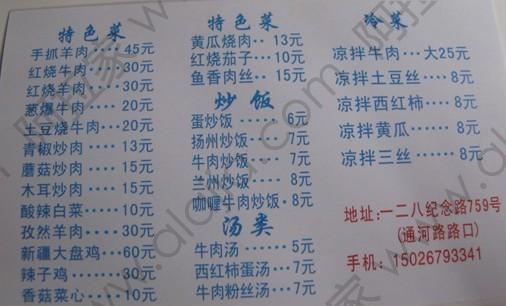 特色菜
手抓羊肉····45元
红烧牛肉····30元
红烧羊肉····30元
葱爆牛肉····20元
土豆烧牛肉··20元
青椒炒肉····13元
蘑菇炒肉····15元
木耳炒肉····15元
酸辣白菜····10元
孜然羊肉····30元
新疆大盘鸡···60元
辣子鸡······30元
香菇菜心····10元
特色菜
黄瓜烧肉·· 13元
红烧茄子···10元
鱼香肉丝···15元
炒饭
蛋炒饭····· 6元
扬州炒饭···· 7元
牛肉炒饭···· 7元
兰州炒饭···· 8元
咖喱牛肉炒饭··8元
汤类
牛肉汤 ·····5元
西红柿蛋汤···7元
牛肉粉丝汤···7元
冷菜
凉拌牛肉···大25元
凉拌土豆丝···8元
凉拌西红柿···8元
凉拌黄瓜····8元
凉拌三丝····8元
地址:一二八纪念路759号
(通河路路口)
手机: 15026793341